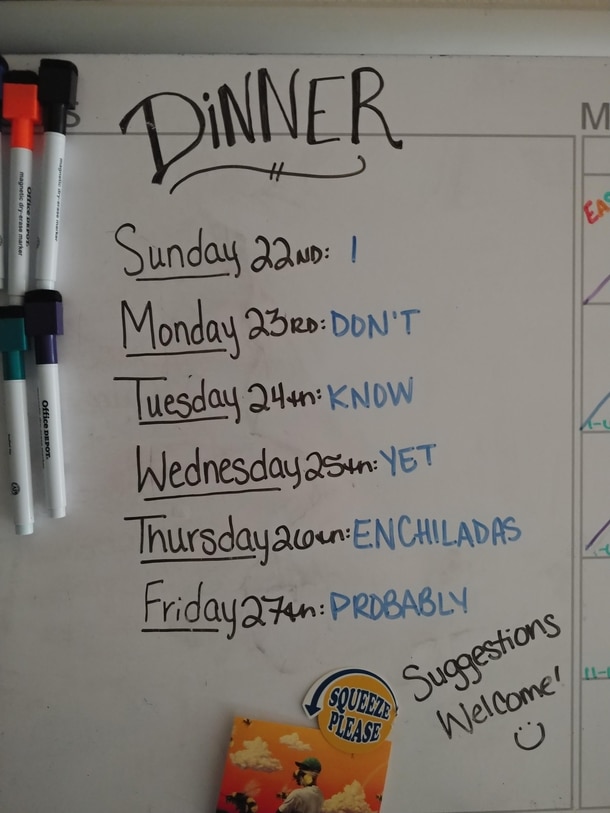 DiNNER
Sunday 22ND: I
Monday 23RD: DON'T
Tuesday 24th: KNOW
Wednesday 25th: YET
Thursday 26th: ENCHILADAS
Friday 27th: PROBABLY
Suggestions
Welcome!
SQUEEZE
PLEASE
S
M
EAS
Office DEPOT.
magnetic dry-erase marker
magnetic dry-erase marker
Office DEPOT.